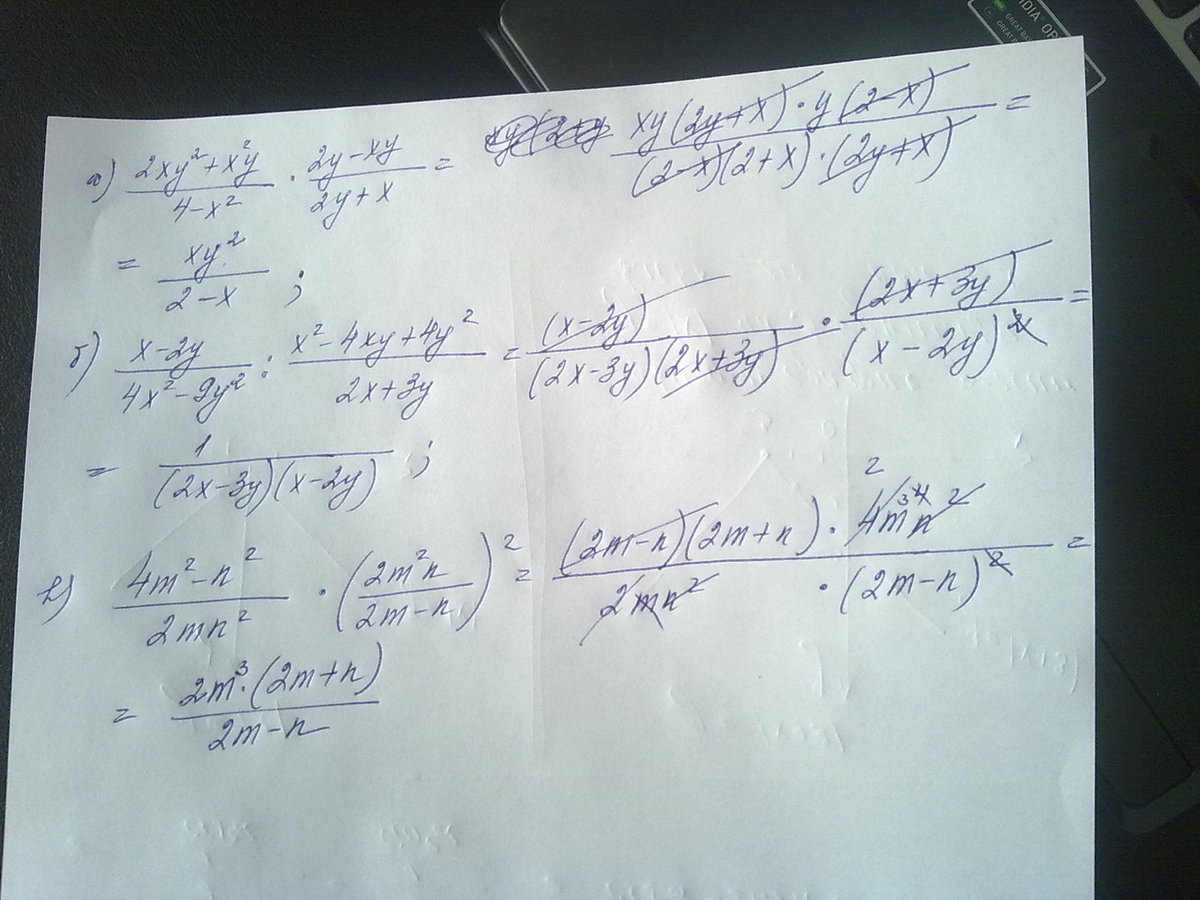 а) (2xy²+x²y)/(4-x²) · (2y-xy)/(2y+x) = (xy(2y+x)·y(2-x))/((2-x)(2+x)·(2y+x)) =
= xy²/(2-x) ;
б) (x-2y)/(4x²-9y²) : (x²-4xy+4y²)/(2x+3y) = (x-2y)/((2x-3y)(2x+3y)) · (2x+3y)/(x-2y)² =
= 1/((2x-3y)(x-2y)) ;
в) (4m²-n²)/(2mn²) · (2m²n/(2m-n))² = ((2m-n)(2m+n)·4m⁴n²)/(2mn²·(2m-n)²) =
= (2m³·(2m+n))/(2m-n)